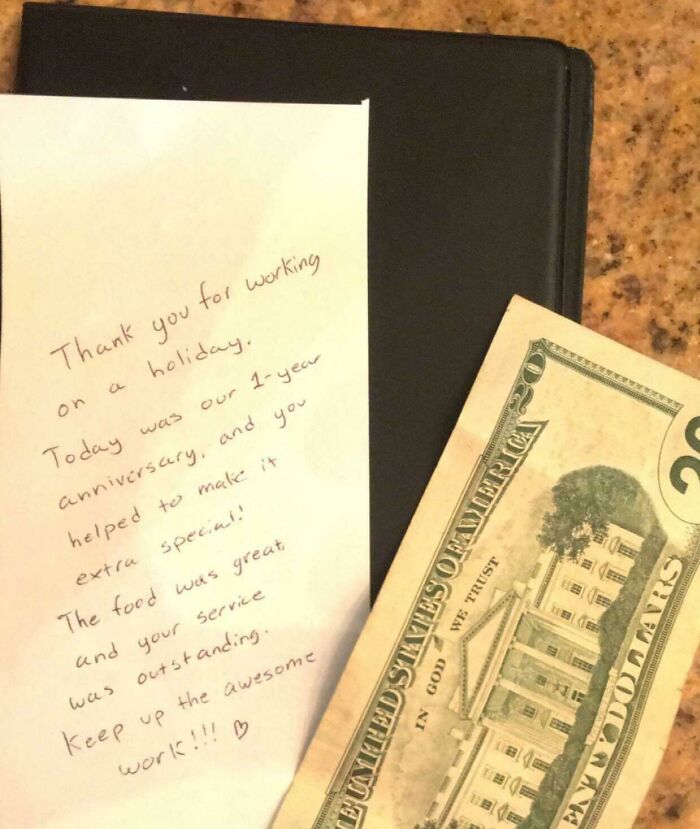 Thank you for working
on a holiday.
Today was our 1-year
anniversary, and you
helped to make it
extra special!
The food was great
and your service
was outstanding.
Keep up the awesome
work!!! ♡
20
THE UNITED STATES OF AMERICA
IN GOD WE TRUST
TWENTY DOLLARS
20